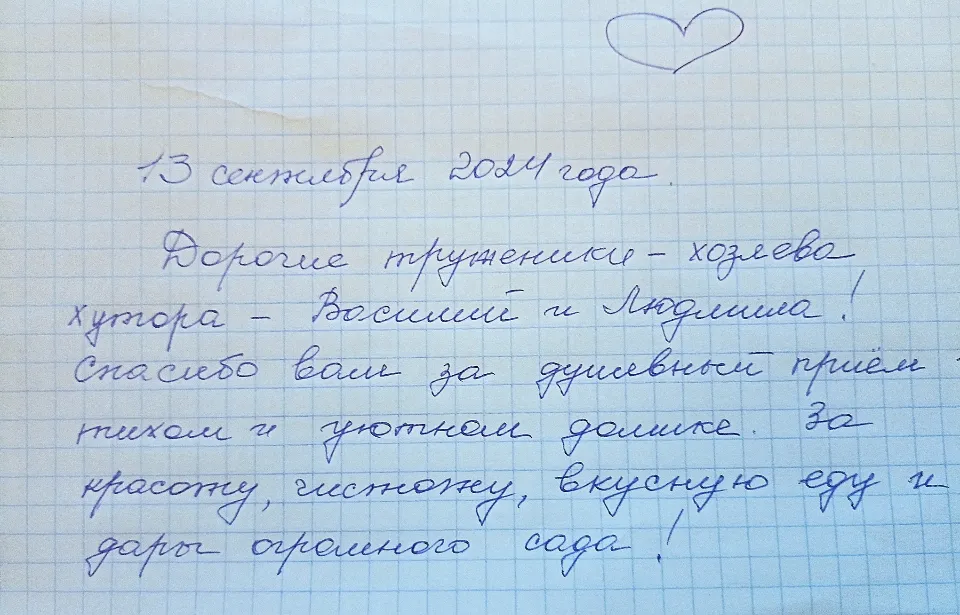 13 сентября 2024 года.
Дорогие труженики - хозяева
хутора - Василий и Людмила!
Спасибо вам за душевный приём
тихом и уютном домике. За
красоту, чистоту, вкусную еду и
дары огромного сада!